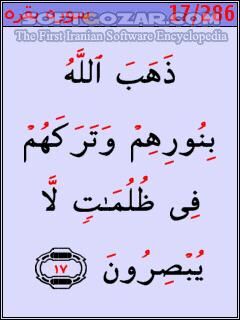 سوره بقره 17/286
SOFTGOZAR.COM
The First Iranian Software Encyclopedia
ذَهَبَ ٱللَّهُ
بِنُورِهِمْ وَتَرَكَهُمْ
فِى ظُلُمَـٰتٍ لَّا
يُبْصِرُونَ ١٧